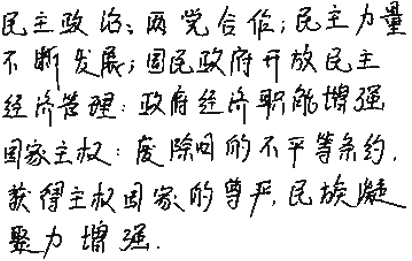 民主政治：两党合作；民主力量
不断发展；国民政府开放民主
经济管理：政府经济职能增强.
国家主权：废除旧的不平等条约,
获得主权国家的尊严,民族凝
聚力增强.